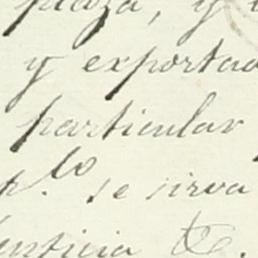 plaza, y
y exportad
particular
p.to se sirva
justicia &.